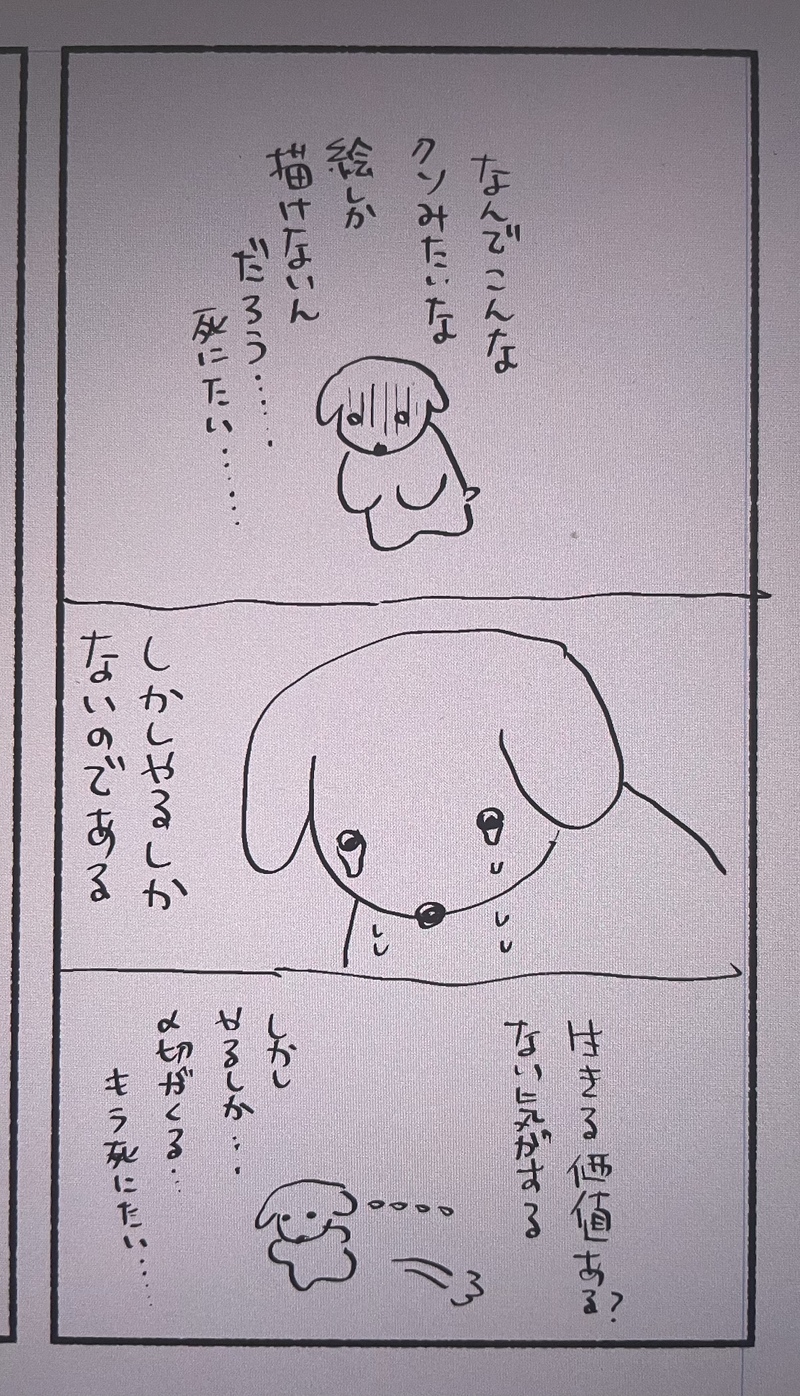 なんでこんな
クソみたいな
絵しか
描けないん
だろう……
死にたい……
しかしやるしか
ないのである
生きる価値ある?
ない気がする
しかし
やるしか…
〆切がくる…
もう死にたい……